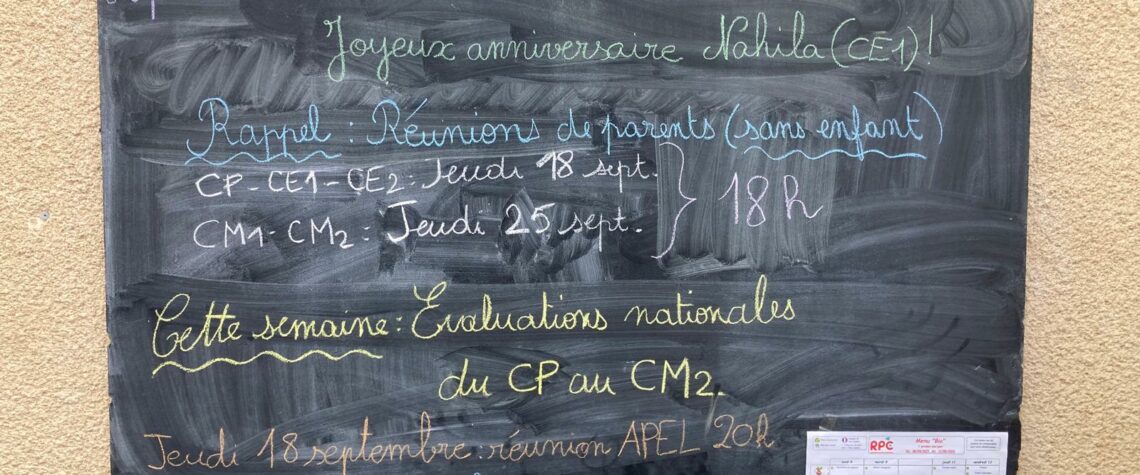 Joyeux anniversaire Nahila (CE1)!
Rappel : Réunions de parents (sans enfant)
CP-CE1-CE2: Jeudi 18 sept.
CM1-CM2: Jeudi 25 sept.
18h
Cette semaine: Évaluations nationales
du CP au CM2.
Jeudi 18 septembre: réunion APEL 20h
RPC
Menu "Bio"